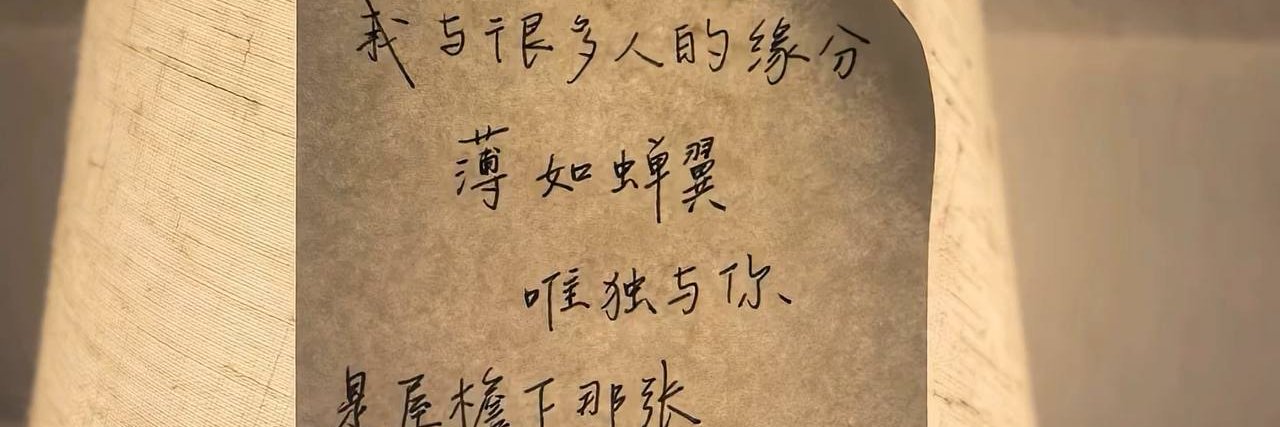 我与很多人的缘分
薄如蝉翼
唯独与你
是屋檐下那张